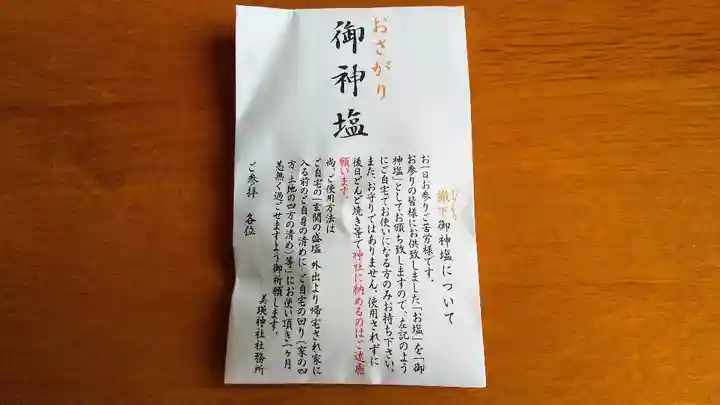 おさがり
御神塩
おさがり
撤下御神塩について
お一日お参りご苦労様です。
お参りの皆様にお供致しました「お塩」を「御
神塩」としてお頒ち致しますので、左記のよう
にご自宅でお使いになる方のみお持ち下さい。
また、お守りではありません。使用されずに
後日どんど焼き等で神社に納めるのはご遠慮
願います。
尚、ご使用方法は
ご自宅の「玄関の盛塩 外出より帰宅され家に
入る前のご自身の清めに、ご自宅の回り(家の四
方・土地の四方の清め)等」にお使い頂き一ヶ月、
恙無く過ごせますよう御祈願します。
美瑛神社社務所
ご参拝 各位